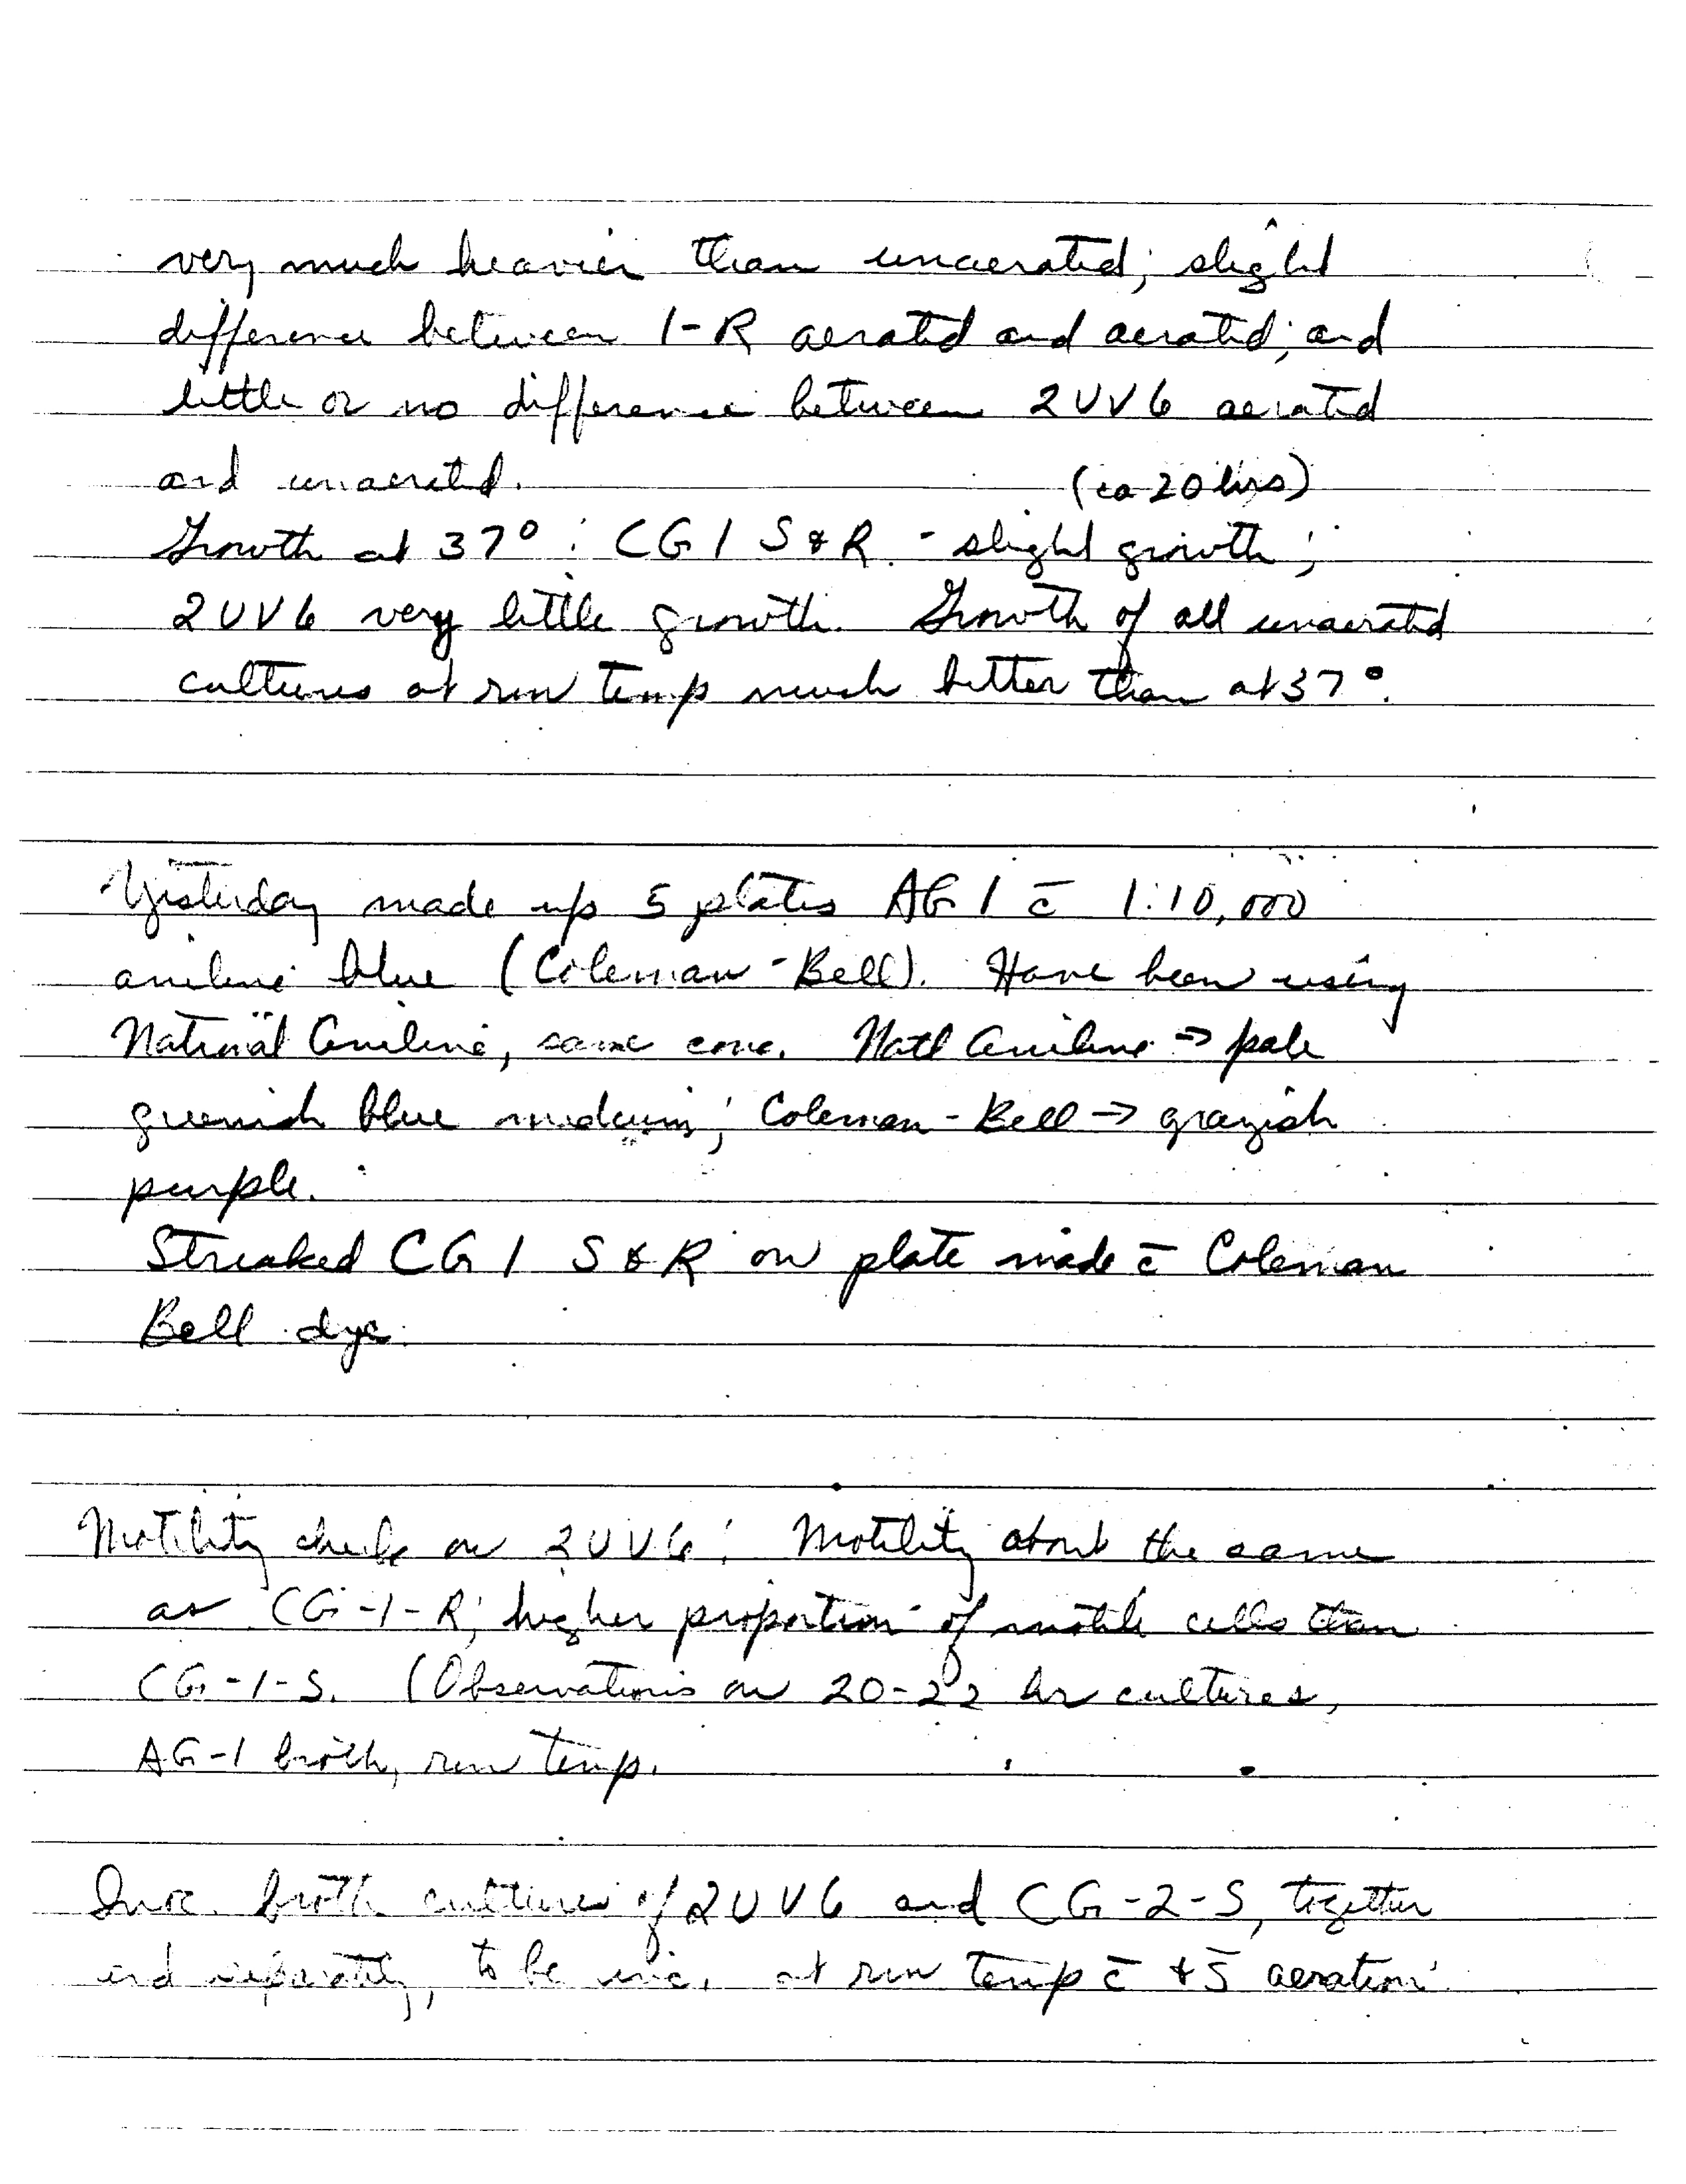 very much heavier than unaerated; slight
difference between 1-R aerated and aerated; and
little or no difference between 2UV6 aerated
and unaerated. (ca 20 hrs)
Growth at 37°: CG1 S & R - slight growth;
2UV6 very little growth. Growth of all unaerated
cultures at rm temp much better than at 37°.
Yesterday made up 5 plates AG1 c̄ 1:10,000
aniline blue (Coleman-Bell). Have been using
National Aniline, same conc. Natl Aniline → pale
greenish blue medium; Coleman-Bell → grayish
purple.
Streaked CG1 S & R on plate made c̄ Coleman
Bell dye.
Motility check on 2UV6: Motility about the same
as CG-1-R; higher proportion of motile cells than
CG-1-S. (Observations on 20-22 hr cultures,
AG-1 broth, rm temp.
Inoc. broth cultures of 2UV6 and CG-2-S, together
and separately, to be inc. at rm temp c̄ + s̄ aeration.